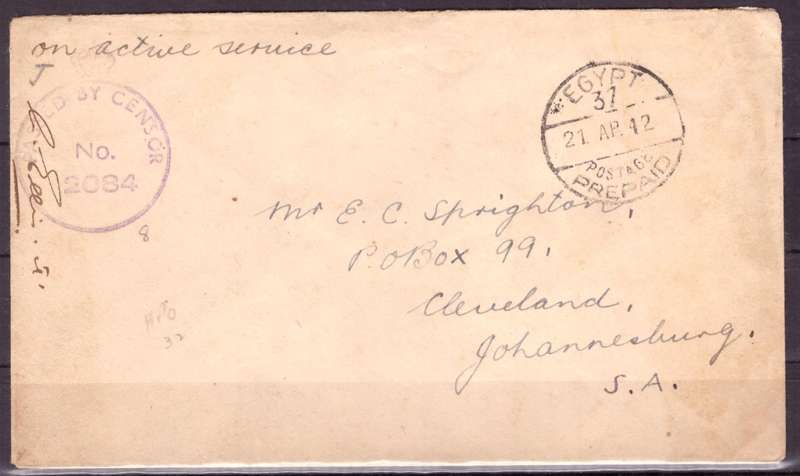 on active service
PASSED BY CENSOR
No.
2084
EGYPT
37
21 AP. 42
POSTAGE
PREPAID
Mr E. C. Sprighton,
P.O Box 99,
Cleveland,
Johannesburg.
S.A.
8
32